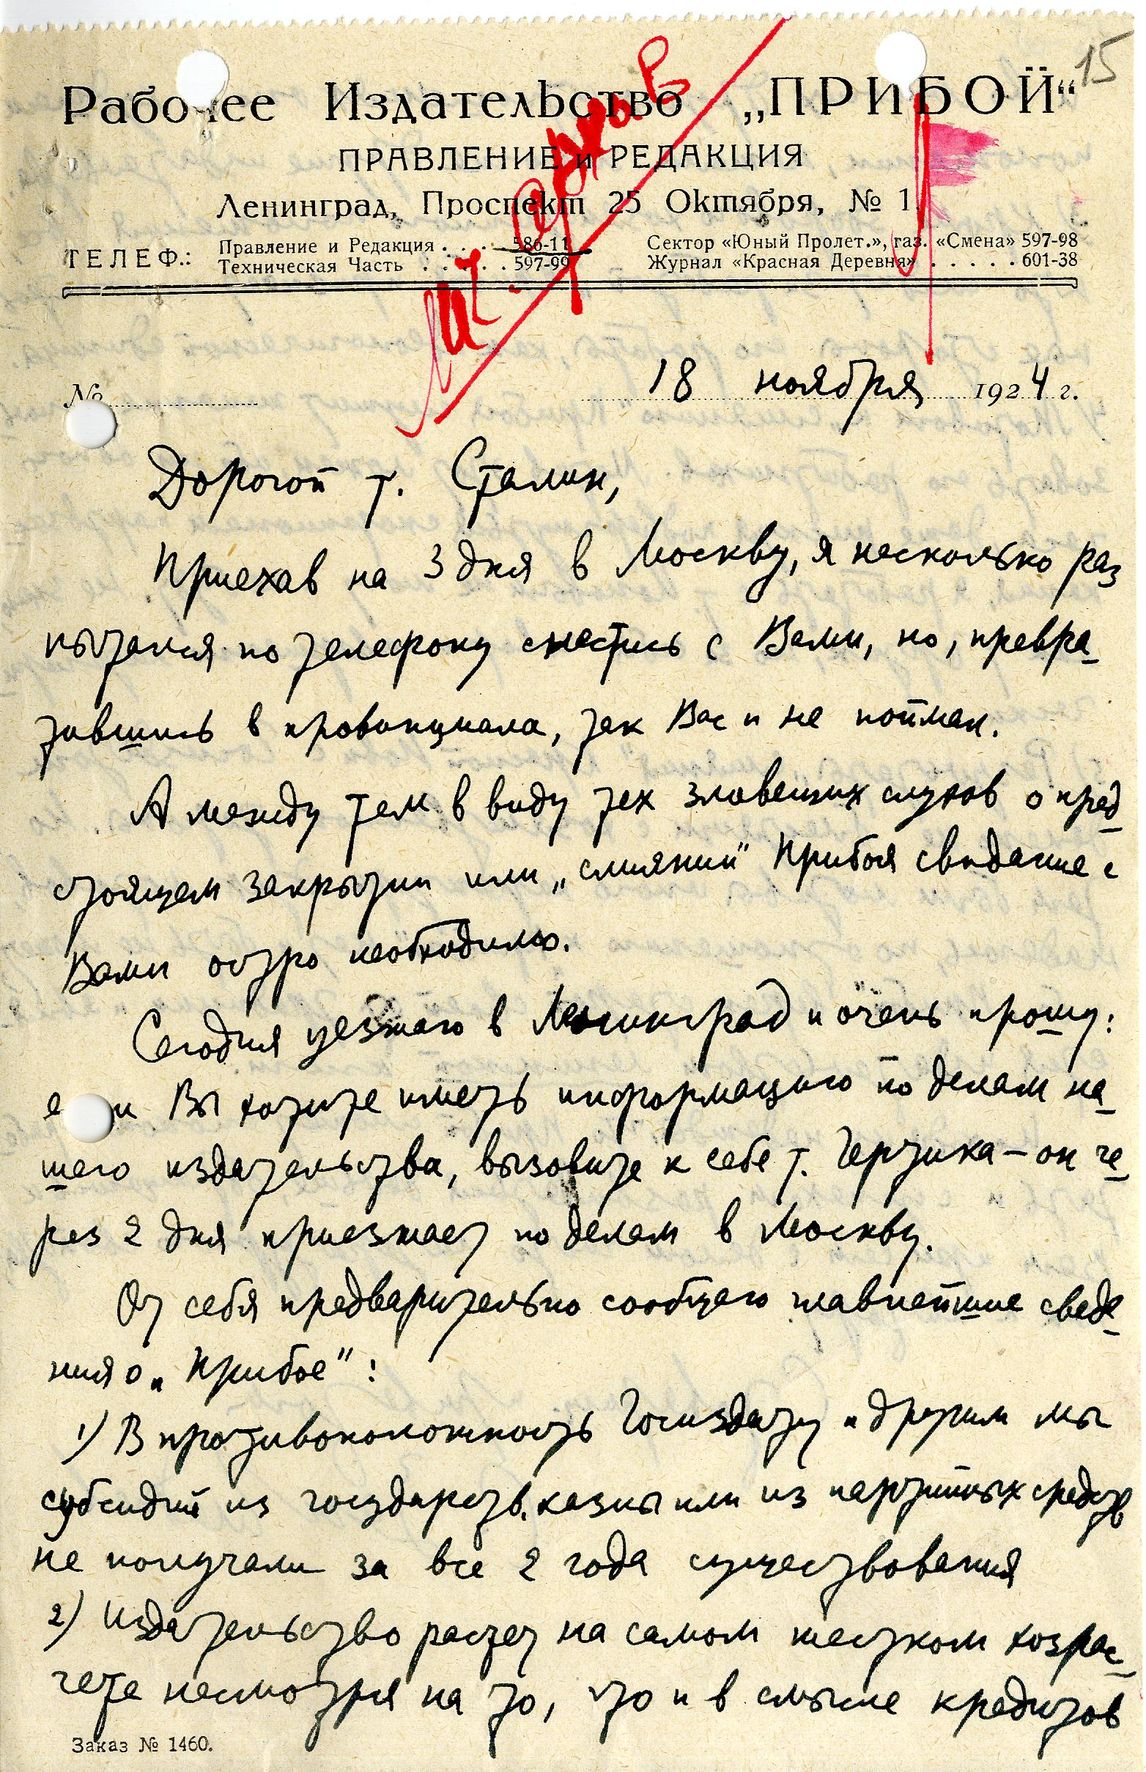 15
Рабочее Издательство „ПРИБОЙ“
ПРАВЛЕНИЕ и РЕДАКЦИЯ
Ленинград, Проспект 25 Октября, № 1.
ТЕЛЕФ.: Правление и Редакция . . . . 586-11 Сектор «Юный Пролет.», газ. «Смена» 597-98
Техническая Часть . . . . . . 597-99 Журнал «Красная Деревня» . . . . . 601-38
№ 18 ноября 1924 г.
Дорогой т. Сталин,
Приехав на 3 дня в Москву, я несколько раз
пытался по телефону снестись с Вами, но, превра-
тившись в провинциала, так Вас и не поймал.
А между тем в виду тех зловещих слухов о пред-
стоящем закрытии или „слиянии“ Прибоя свидание с
Вами остро необходимо.
Сегодня уезжаю в Ленинград и очень прошу:
если Вы хотите иметь информацию по делам на-
шего издательства, вызовите к себе т. Гертика — он че-
рез 2 дня приезжает по делам в Москву.
От себя предварительно сообщаю главнейшие сведе-
ния о „Прибое“:
1) В противоположность Госиздату и другим мы
субсидий из государств. казны или из партийных средств
не получали за все 2 года существования
2) Издательство растет на самом жестком хозрас-
чете несмотря на то, что и в смысле кредитов
Заказ № 1460.